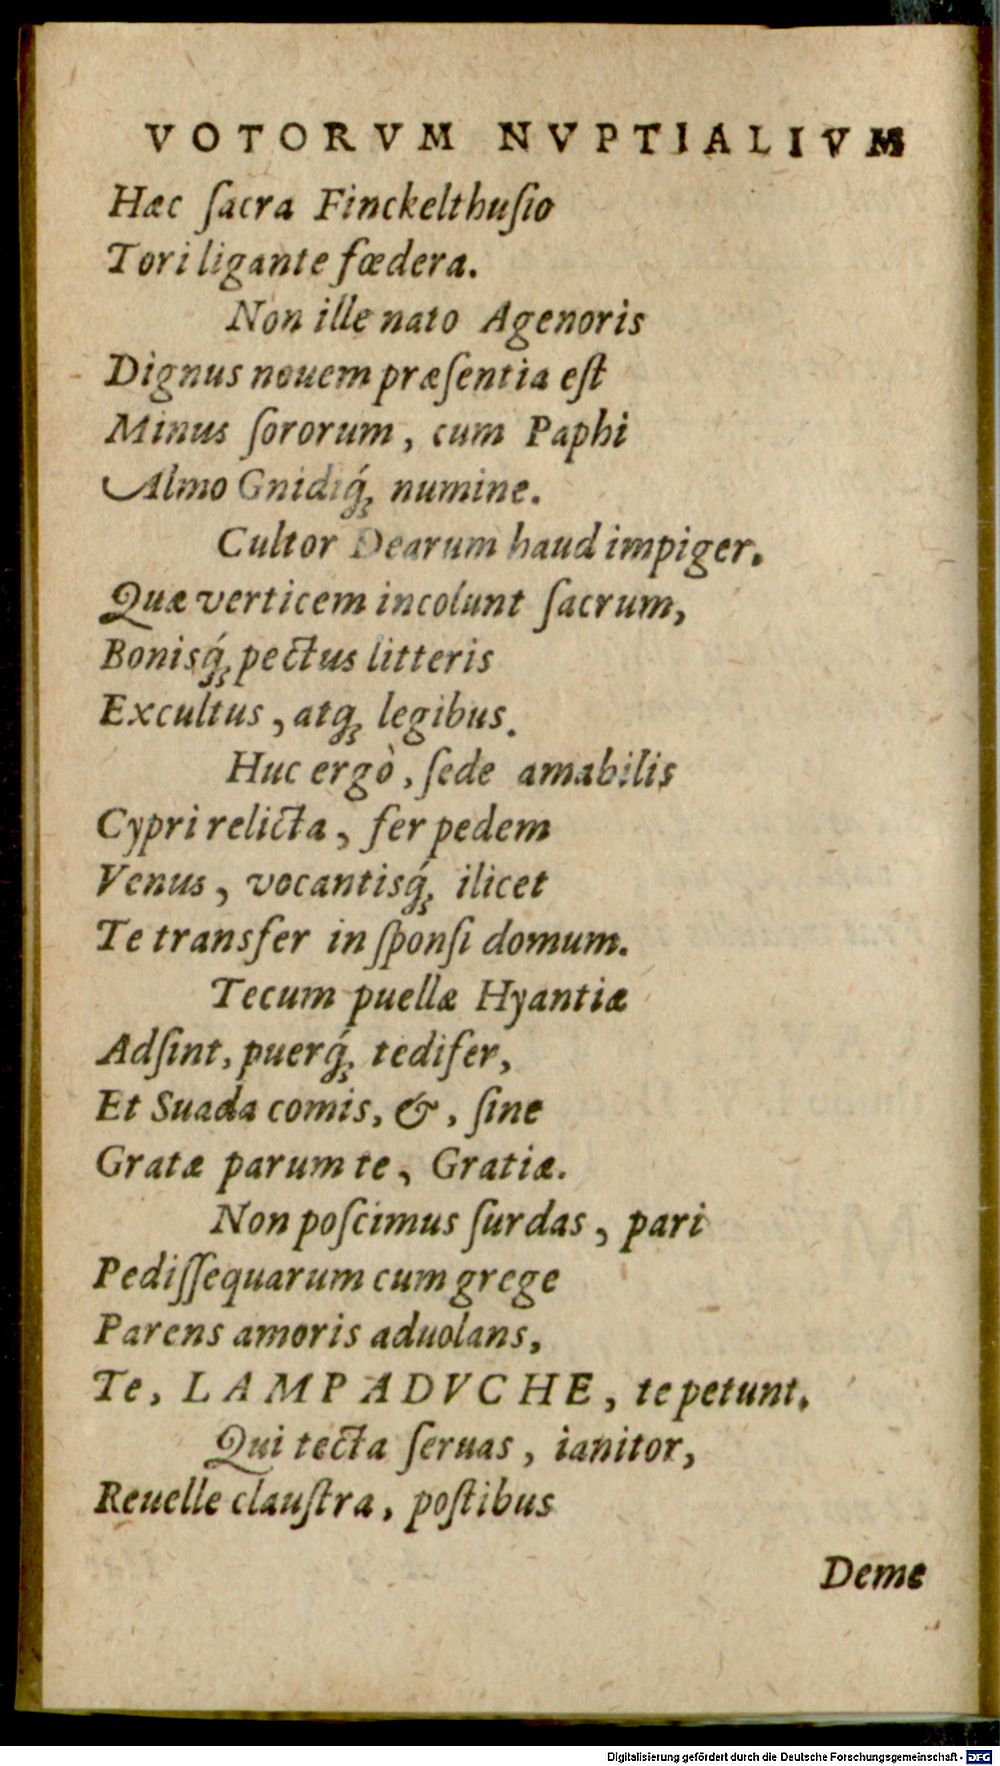 VOTORVM NVPTIALIVM
Hæc ſacra Finckelthuſio
Tori ligante fœdera.
Non ille nato Agenoris
Dignus nouem præſentia eſt
Minus ſororum, cum Paphi
Almo Gnidiq́ꝫ numine.
Cultor Dearum haud impiger,
Quæ verticem incolunt ſacrum,
Bonisq́ꝫ pectus litteris
Excultus, atqꝫ legibus.
Huc ergò, ſede amabilis
Cypri relicta, fer pedem
Venus, vocantisq́ꝫ ilicet
Te transfer in ſponſi domum.
Tecum puellæ Hyantiæ
Adſint, puerq́ꝫ tedifer,
Et Suada comis, &, ſine
Gratæ parum te, Gratiæ.
Non poſcimus ſurdas, pari
Pediſſequarum cum grege
Parens amoris aduolans,
Te, LAMPADVCHE, te petunt.
Qui tecta ſeruas, ianitor,
Reuelle clauſtra, poſtibus
Deme
Digitalisierung gefördert durch die Deutsche Forschungsgemeinschaft - DFG